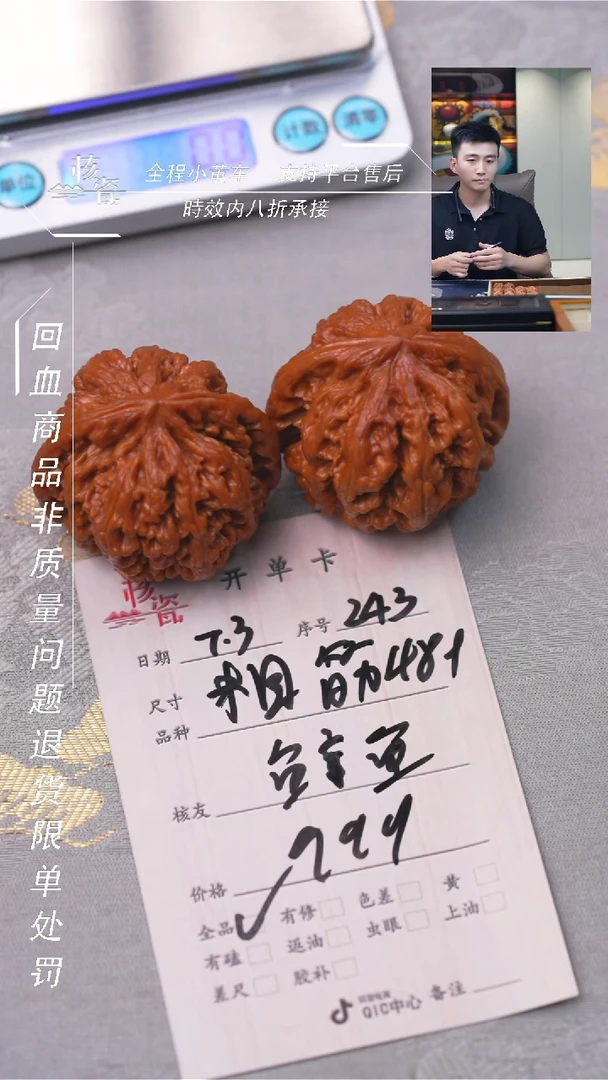 计数
清零
单位
核瓷
全程小黄车 支持平台售后
時效内八折承接
回血商品非质量问题退货限单处罚
核瓷
开单卡
日期 7.3 序号 243
尺寸
筋481
品种
核友
价格
全品✓ 有修 色差 黄
有磕 返油 虫眼 上油
差尺 胶补
抖音电商
QIC中心 备注